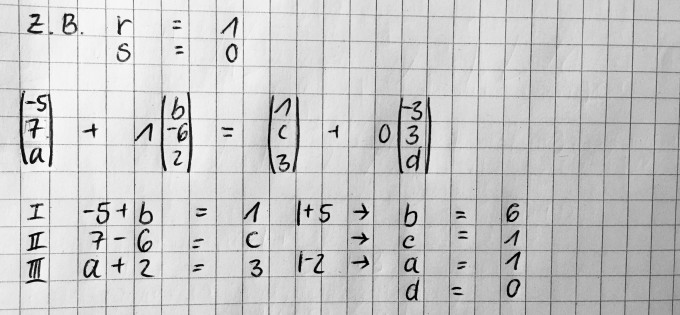 z.B. r = 1
s = 0
(-5 7 a) + 1 (b -6 2) = (1 c 3) + 0 (-3 3 d)
I -5+b = 1 |+5 → b = 6
II 7-6 = c → c = 1
III a+2 = 3 |-2 → a = 1
d = 0